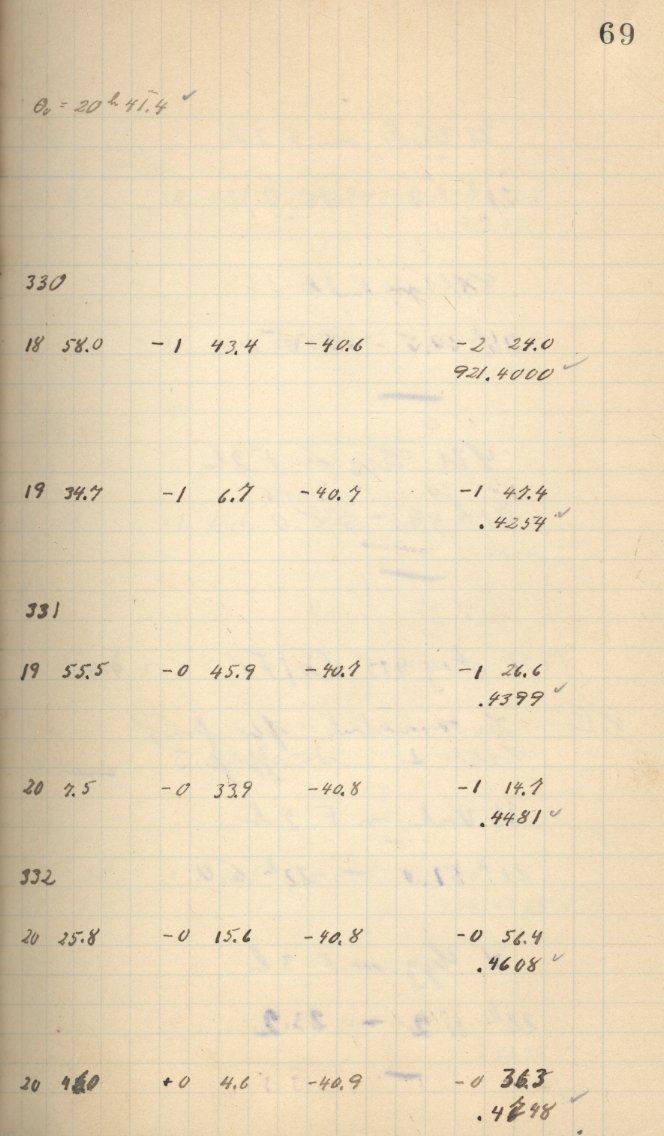 69
θ₀ = 20ʰ 41.4 ✓
330
18 58.0 -1 43.4 -40.6 -2 24.0
921.4000 ✓
19 34.7 -1 6.7 -40.7 -1 47.4
.4254 ✓
331
19 55.5 -0 45.9 -40.7 -1 26.6
.4399 ✓
20 7.5 -0 33.9 -40.8 -1 14.7
.4481 ✓
332
20 25.8 -0 15.6 -40.8 -0 56.4
.4608 ✓
20 46.0 +0 4.6 -40.9 -0 36.3
.4748 ✓